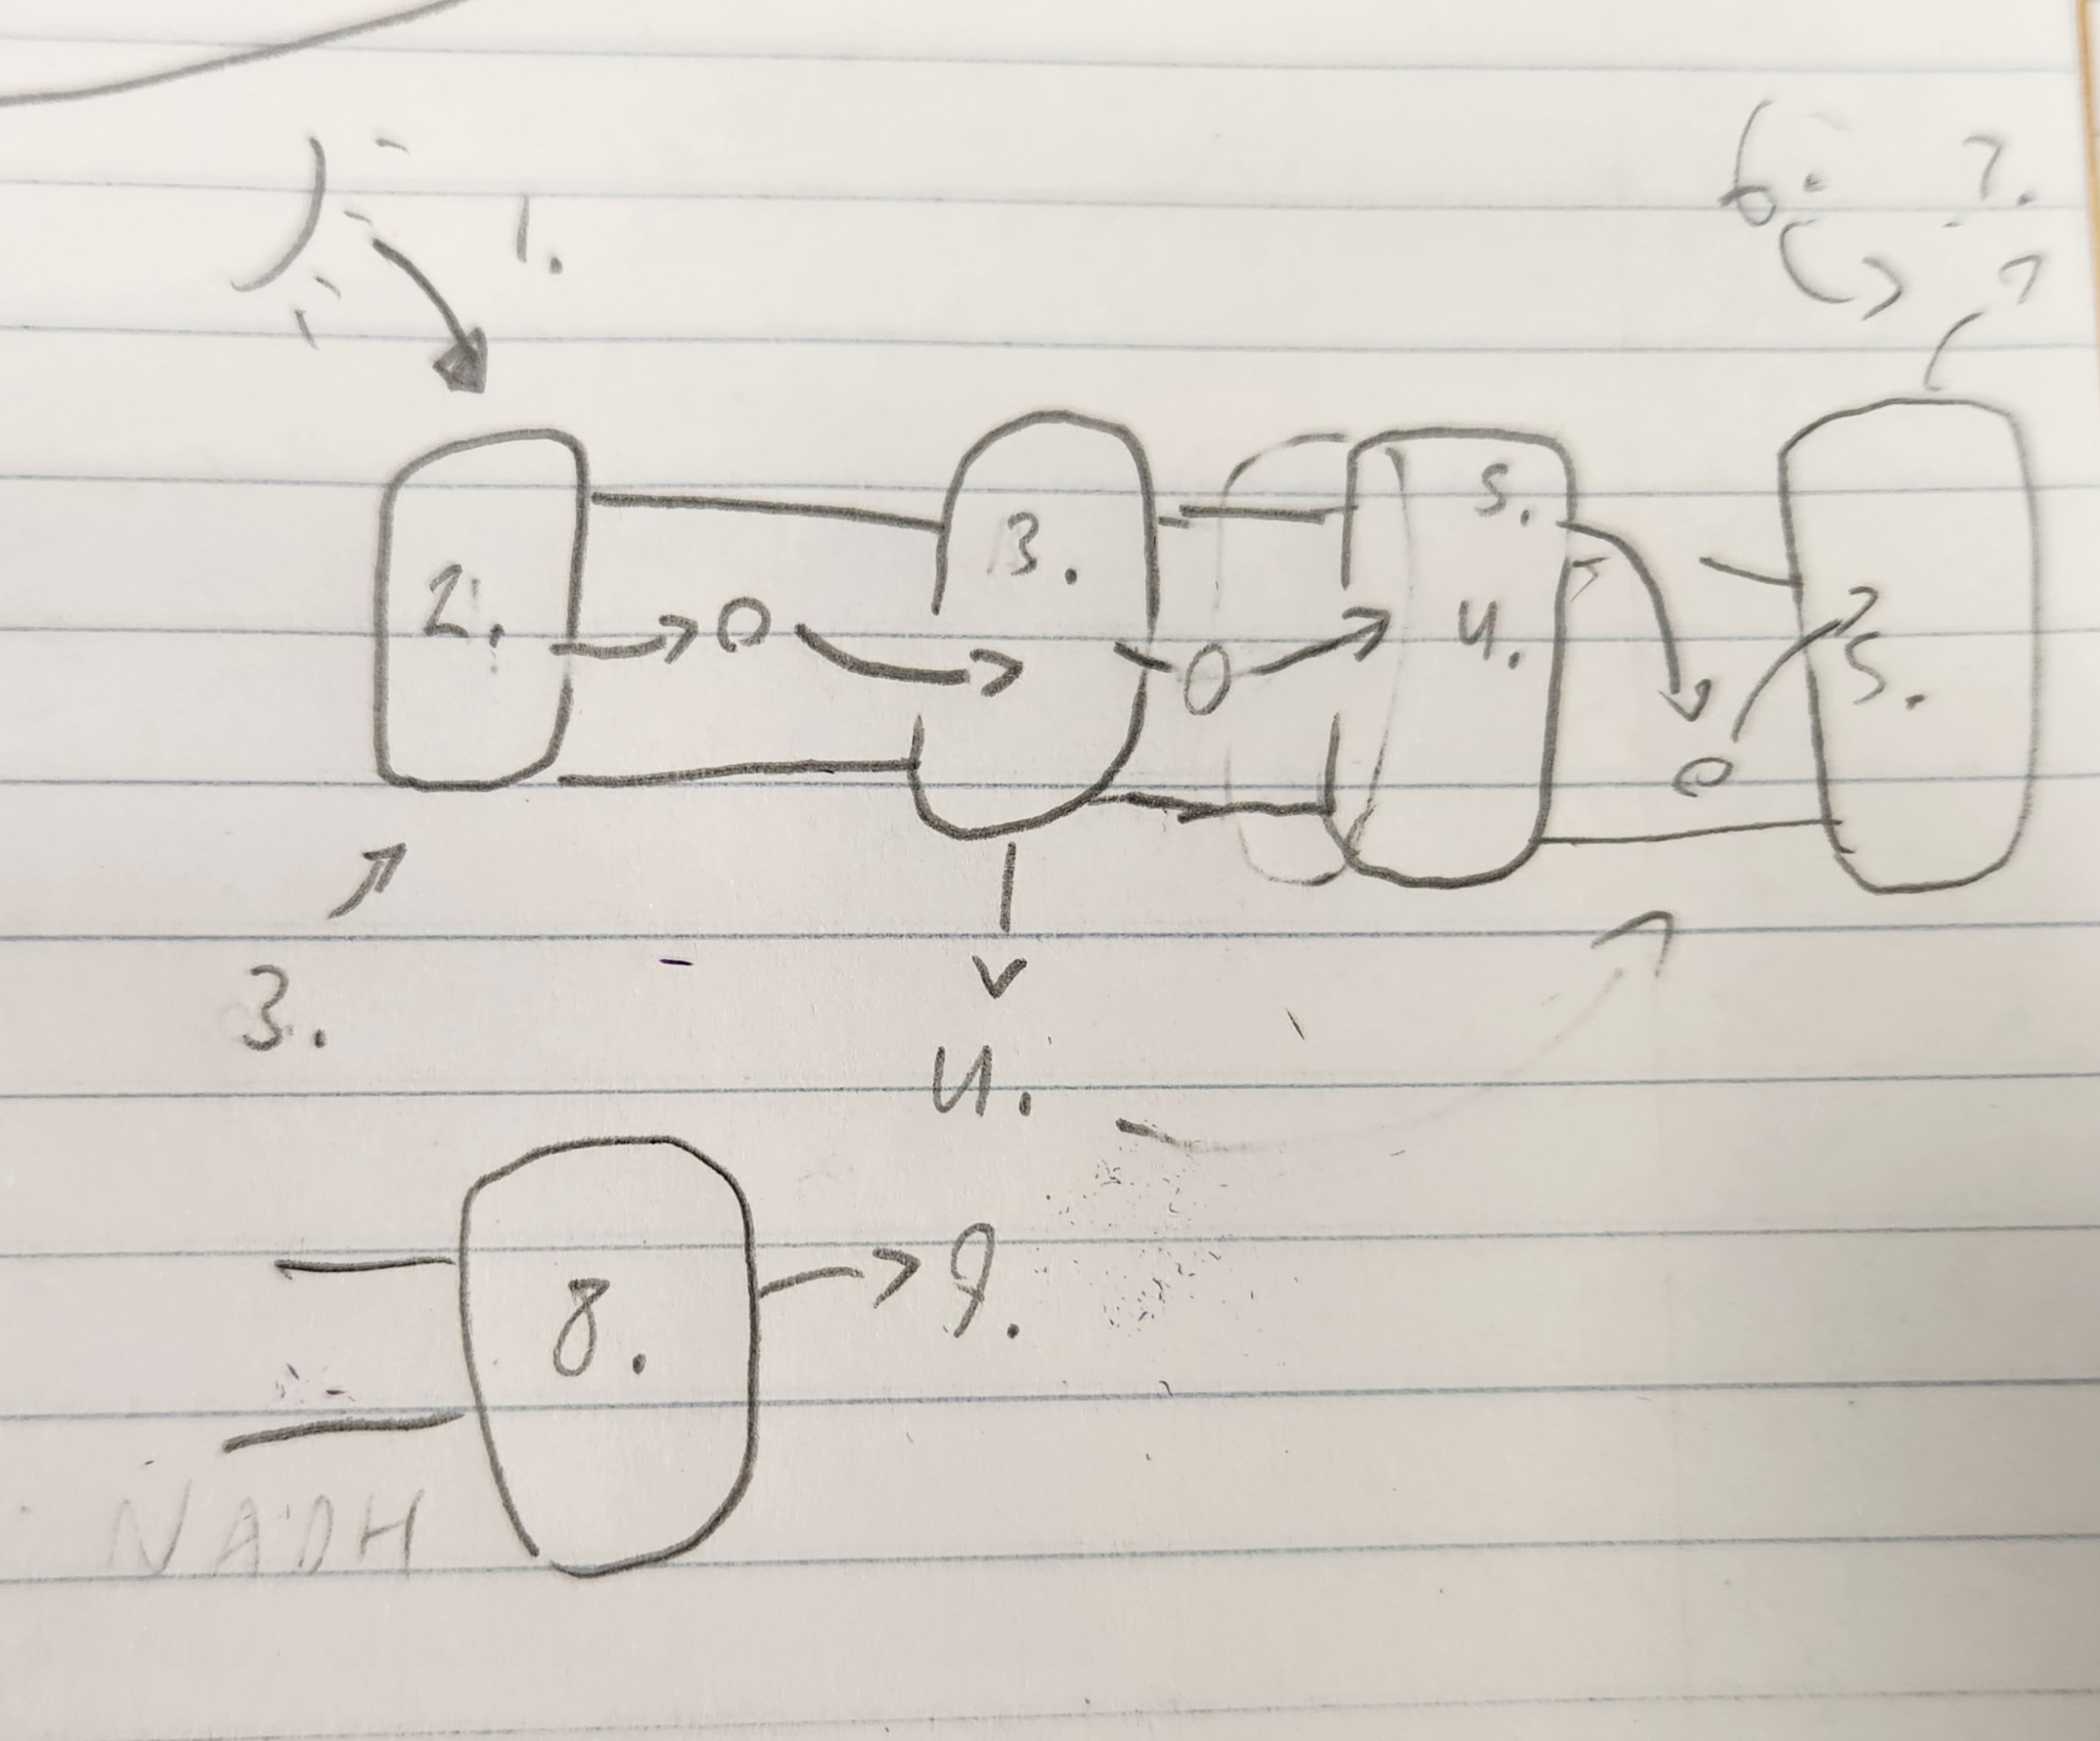 1. 6. 7.
5.
3.
2. 4. 5.
3.
4.
8. 9.
NADH